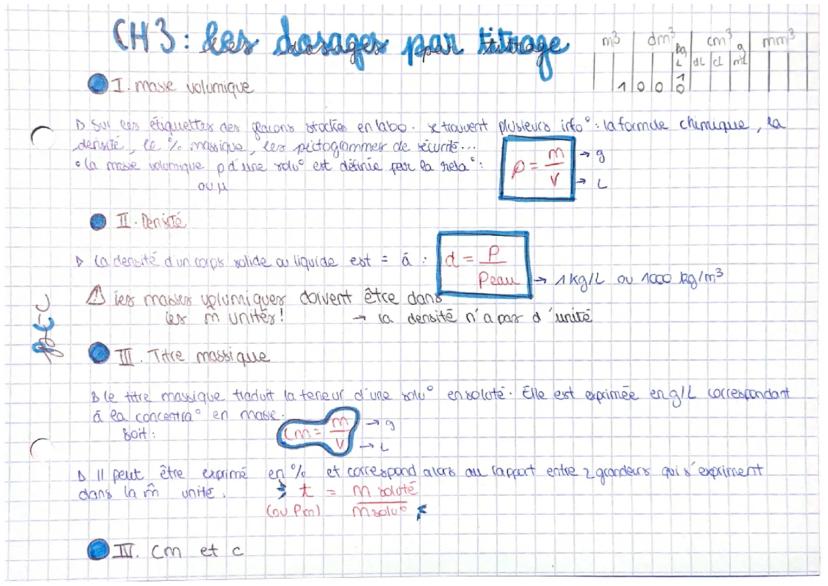 CH 3 : les dosages par titrage
m³ dm³ cm³ mm³
kg L dL cL g mL
1 0 0 0
I. masse volumique
▷ Sur les étiquettes des flacons stockés en labo. se trouvent plusieurs info° : la formule chimique, la
densité, le % massique, les pictogrammes de sécurité...
• la masse volumique ρ d'une solu° est définie par la rela° : ρ = m/V → g → L
ou μ
II. Densité
▷ la densité d'un corps solide ou liquide est = à : d = ρ/ρeau → 1 kg/L ou 1000 kg/m³
⚠ les masses volumiques doivent être dans
les m̂ unités ! → la densité n'a pas d'unité
III. Titre massique
▷ le titre massique traduit la teneur d'une solu° en soluté. Elle est exprimée en g/L correspondant
à la concentra° en masse.
Soit : Cm = m/V → g → L
▷ Il peut être exprimé en % et correspond alors au rapport entre 2 grandeurs qui s'expriment
dans la m̂ unité. t = m soluté / m solu°
(ou Pm)
IV. Cm et c